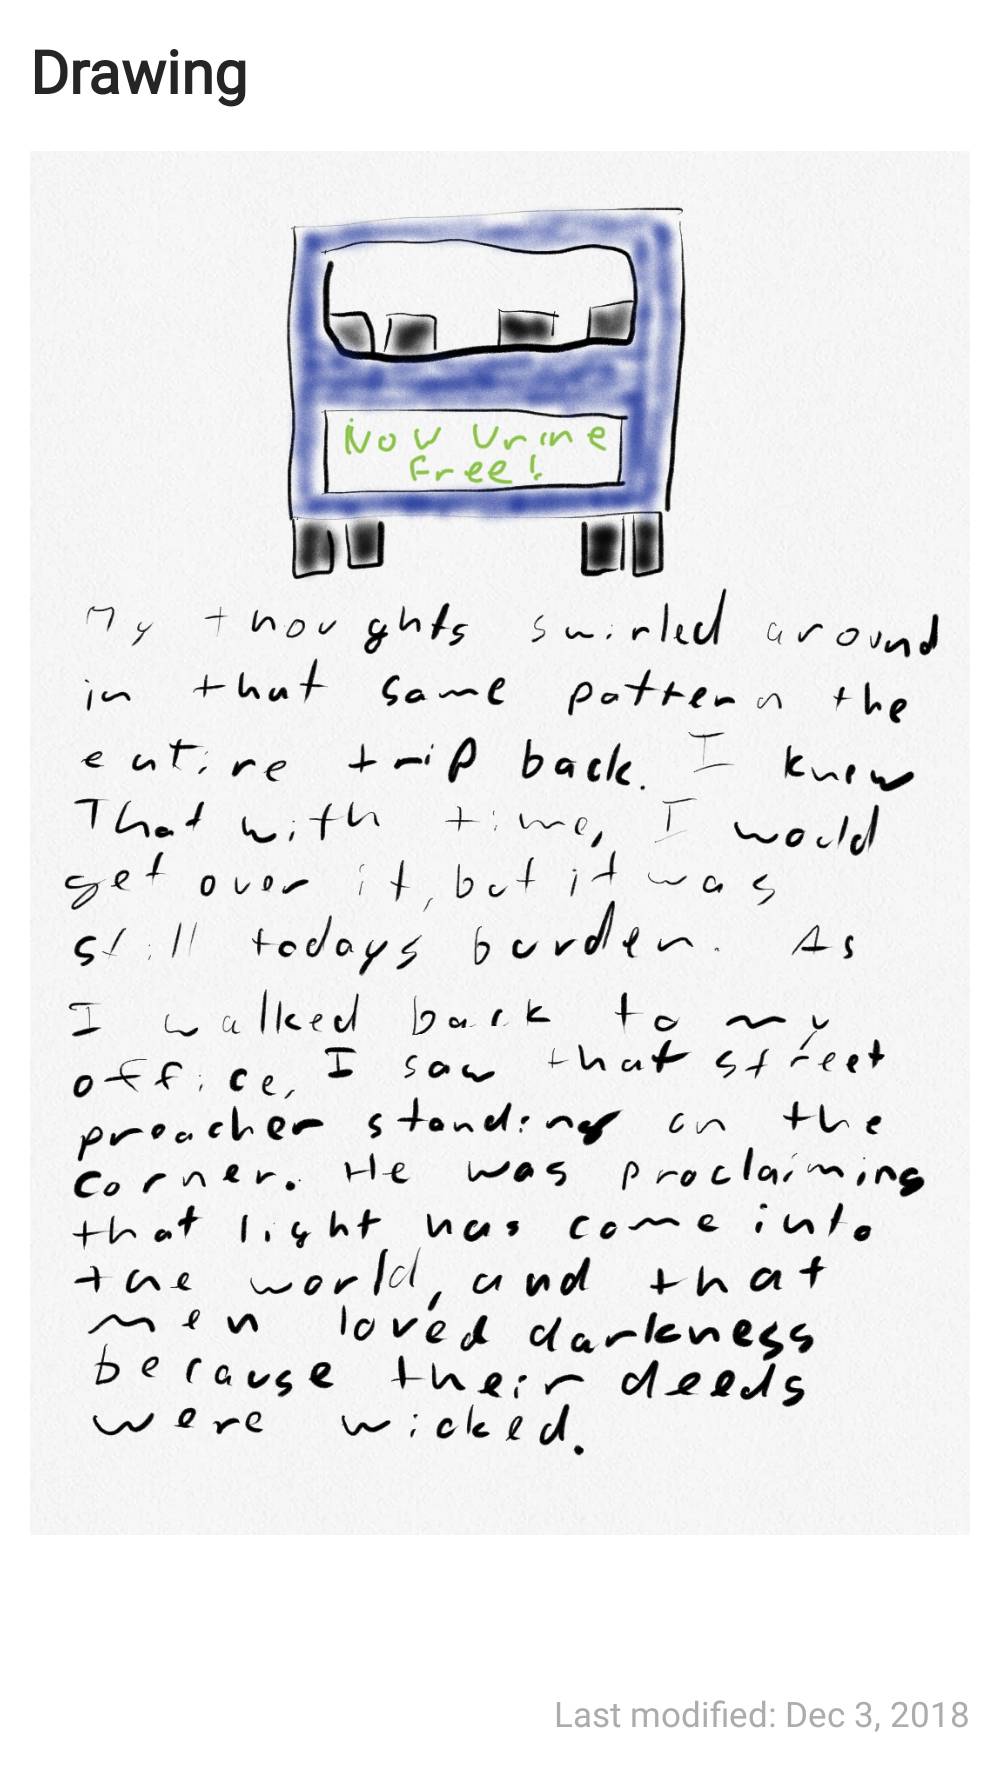 Drawing
Now Urine
Free!
My thoughts swirled around
in that same pattern the
entire trip back. I knew
That with time, I would
get over it, but it was
still todays burden. As
I walked back to my
office, I saw that street
preacher standing on the
corner. He was proclaiming
that light has come into
the world, and that
men loved darkness
because their deeds
were wicked.
Last modified: Dec 3, 2018